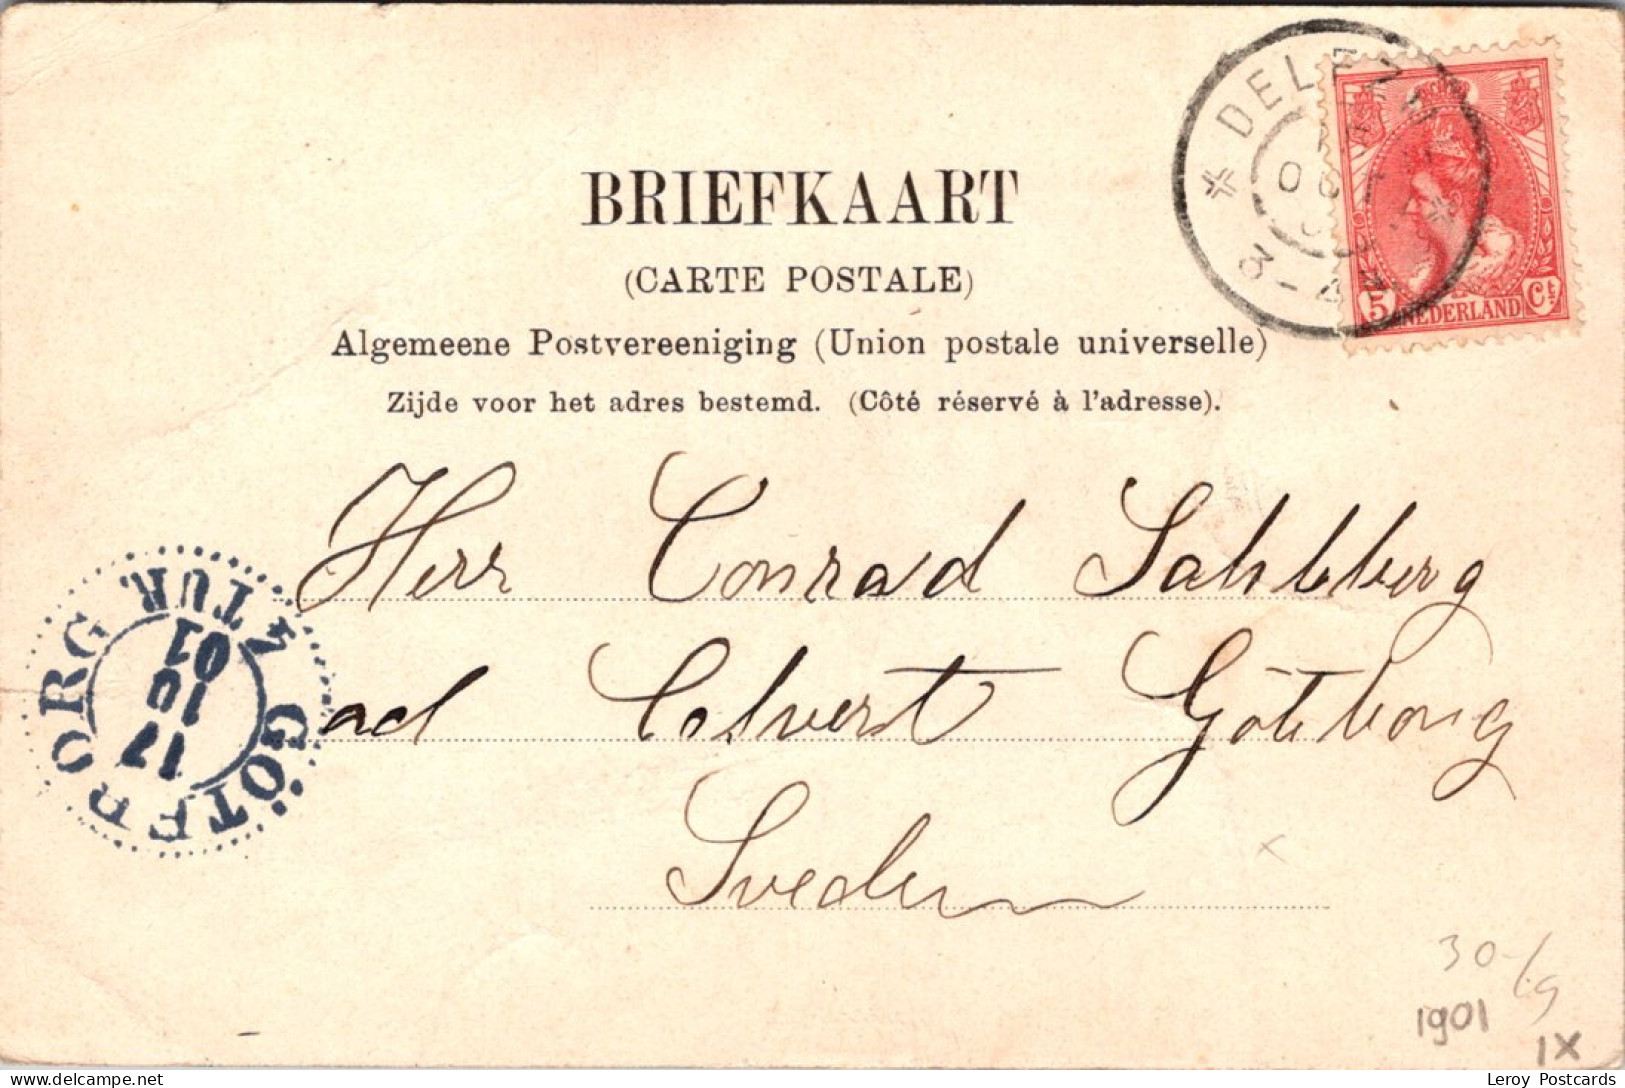 BRIEFKAART
(CARTE POSTALE)
Algemeene Postvereeniging (Union postale universelle)
Zijde voor het adres bestemd. (Côté réservé à l'adresse).
5 NEDERLAND Ct
8-
Herr Conrad Sahlberg
ad Göteborg
Sveden
GÖTEBORG
TUR
17
10
01
30-
1901
IX
delcampe.net
Leroy Postcards